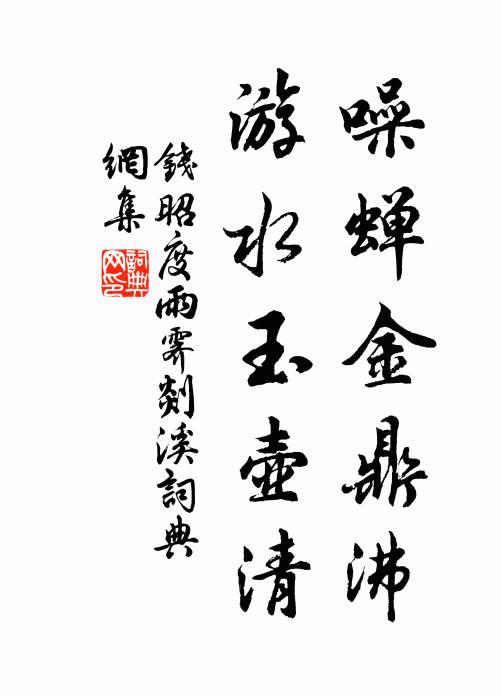 噪蝉金鼎沸
游水玉壺清
錢昭度雨霽剡溪詞典
網集
詞典
网印